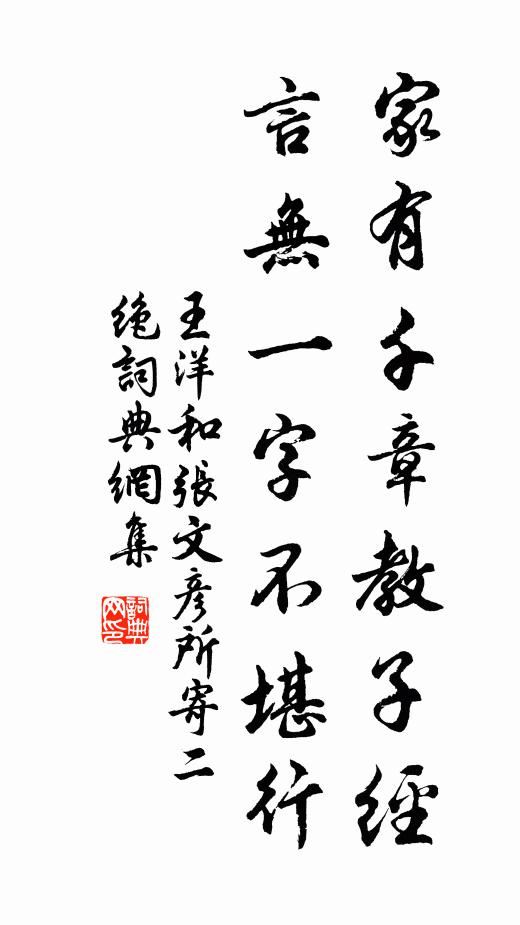 家有千章教子經
言無一字不堪行
王洋和張文彥所寄二
絶詞典網集
詞典
网印